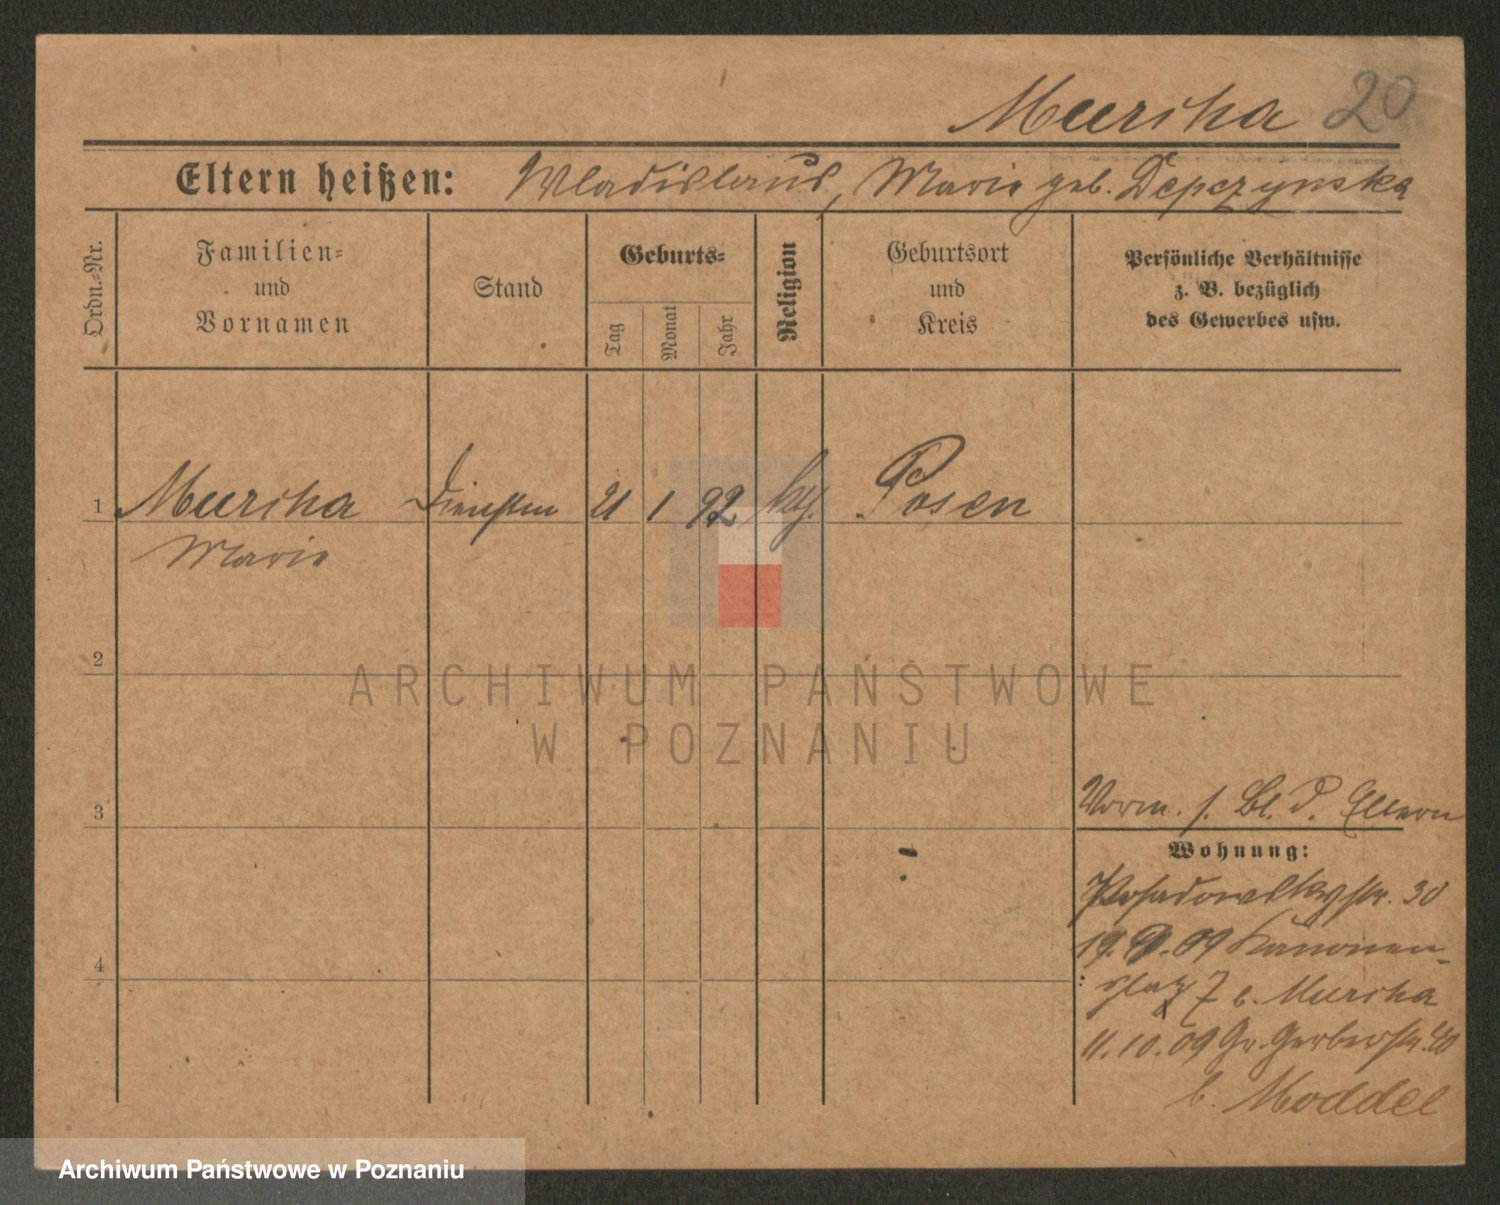 Murcha 20
Eltern heißen: Wladislaus, Marie geb. Depczynska
Ordn.-Nr.
Familien=
und
Vornamen
Stand
Geburts=
Tag
Monat
Jahr
Religion
Geburtsort
und
Kreis
Persönliche Verhältnisse
z. B. bezüglich
des Gewerbes usw.
1 Murcha 21 1 92 Posen
Marie
2
ARCHIWUM PAŃSTWOWE
W POZNANIU
3
Vorm. s. Bl. d. Eltern
Wohnung:
Posadowskystr. 30
19. 09 Kanonen-
4
platz 7 b. Murcha
11.10.09 Gr. Gerberstr. 40
b. Moddel
Archiwum Państwowe w Poznaniu